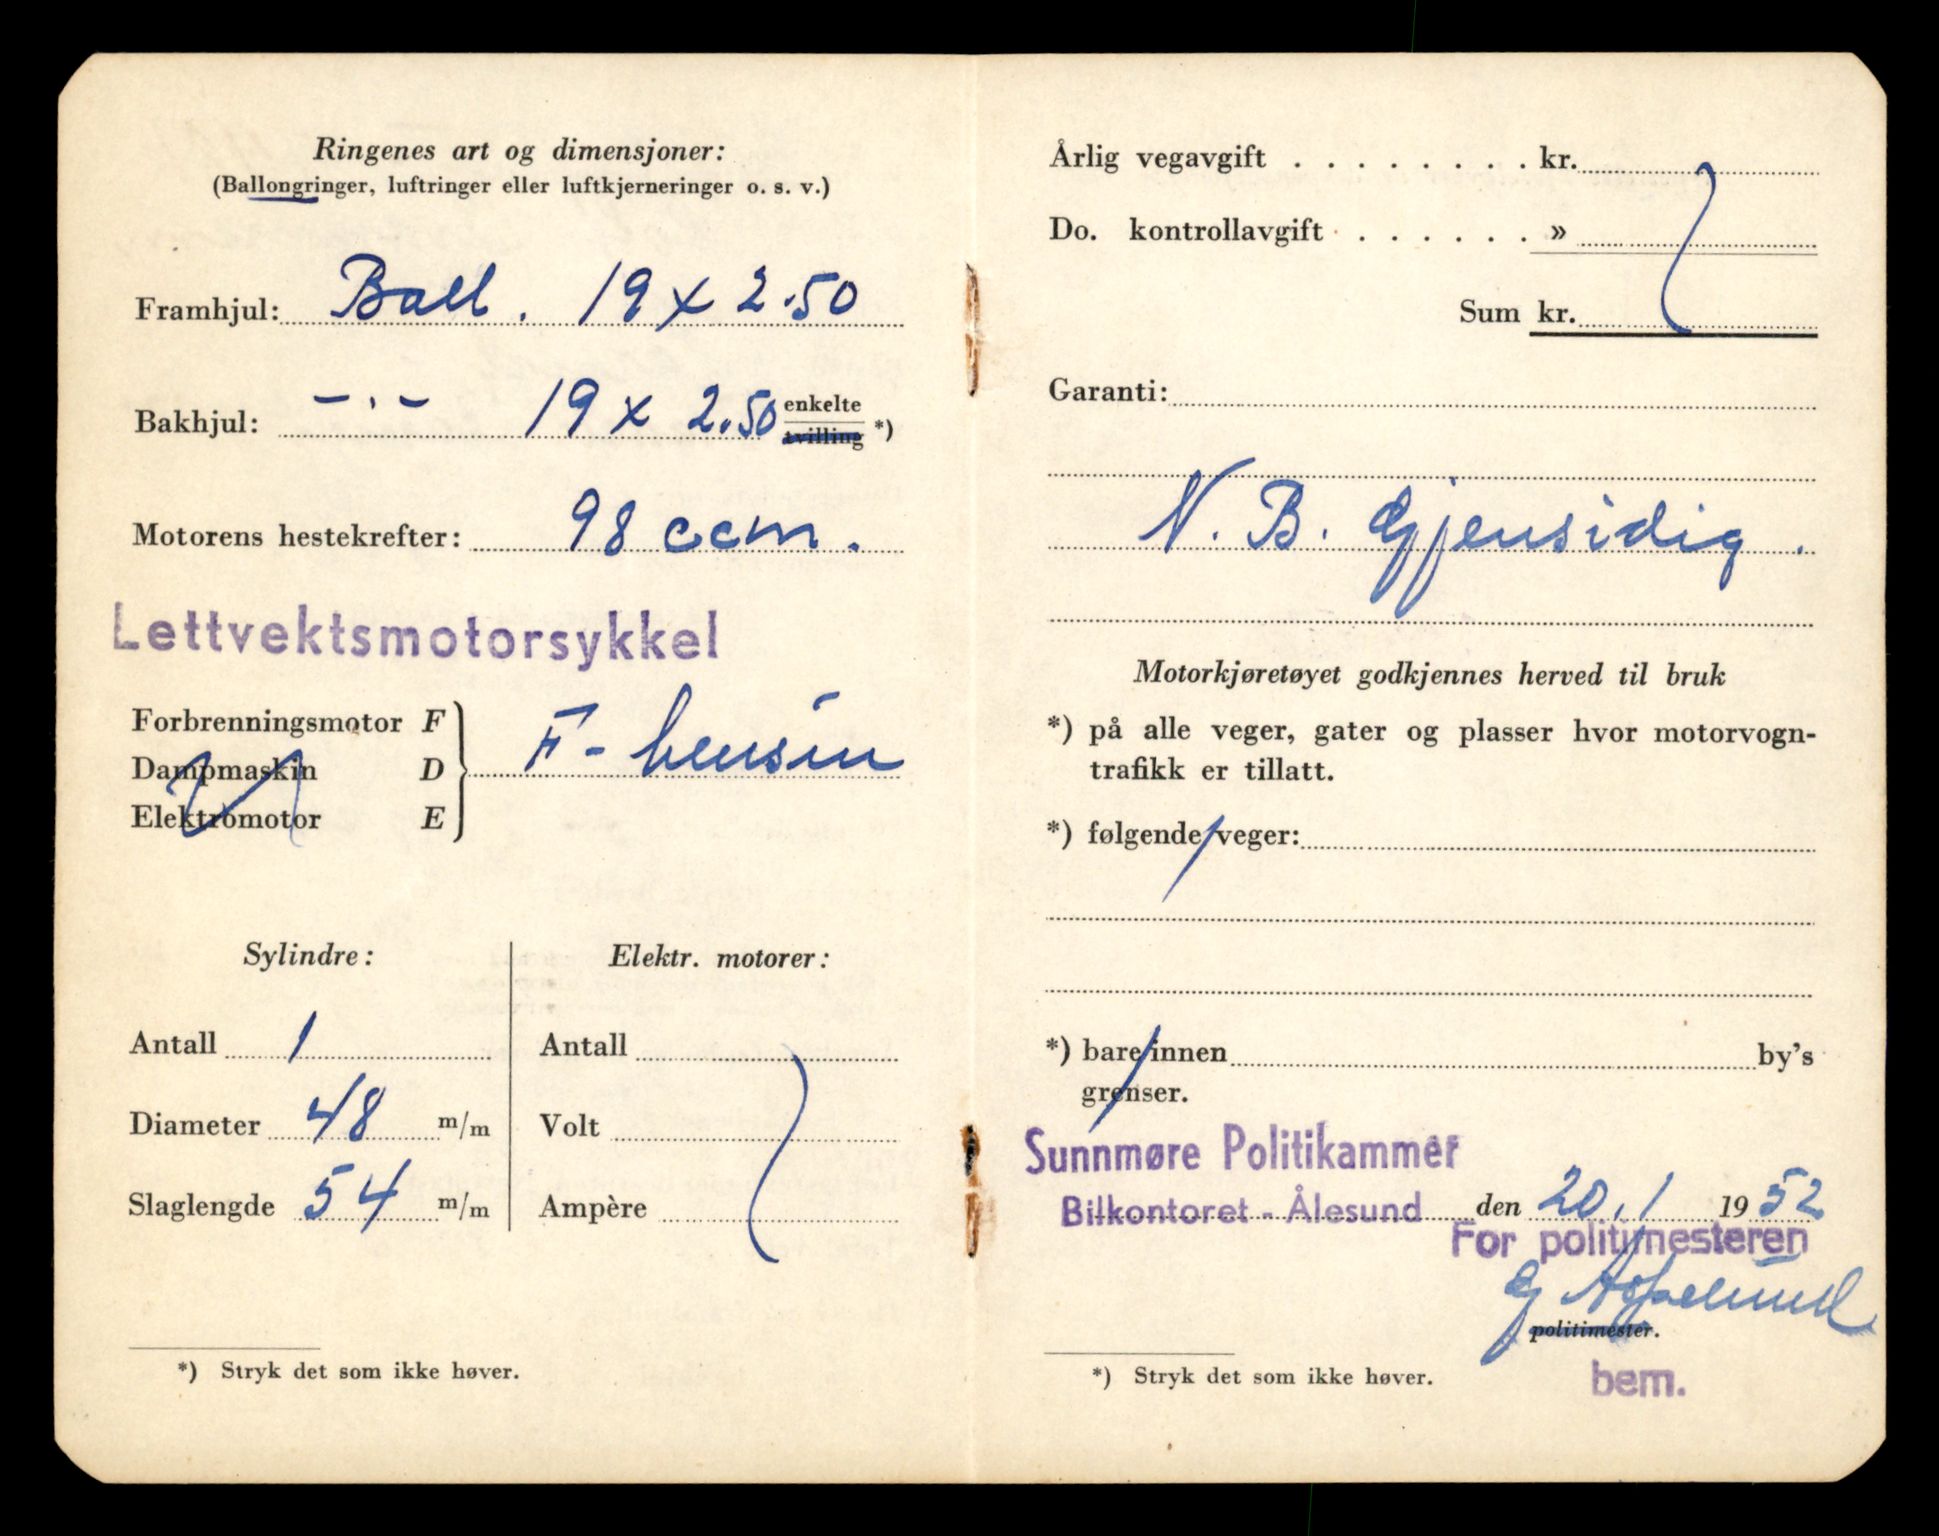 Ringenes art og dimensjoner:
(Ballongringer, luftringer eller luftkjerneringer o. s. v.)
Framhjul: Ball. 19 x 2.50
Bakhjul: – . – 19 x 2.50 enkelte
tvilling *)
Motorens hestekrefter: 98 ccm.
Lettvektsmotorsykkel
Forbrenningsmotor F
Dampmaskin D
Elektromotor E
F - bensin
Sylindre:
Antall 1
Diameter 48 m/m
Slaglengde 54 m/m
Elektr. motorer:
Antall
Volt
Ampère
*) Stryk det som ikke høver.
Årlig vegavgift . . . . . . . . kr.
Do. kontrollavgift . . . . . . »
Sum kr.
Garanti:
N. B. Gjensidig.
Motorkjøretøyet godkjennes herved til bruk
*) på alle veger, gater og plasser hvor motorvogn-
trafikk er tillatt.
*) følgende veger:
*) bare innen by's
grenser.
Sunnmøre Politikammer
Bilkontoret - Ålesund den 20.1 1952
For politimesteren
politimester.
bem.
*) Stryk det som ikke høver.